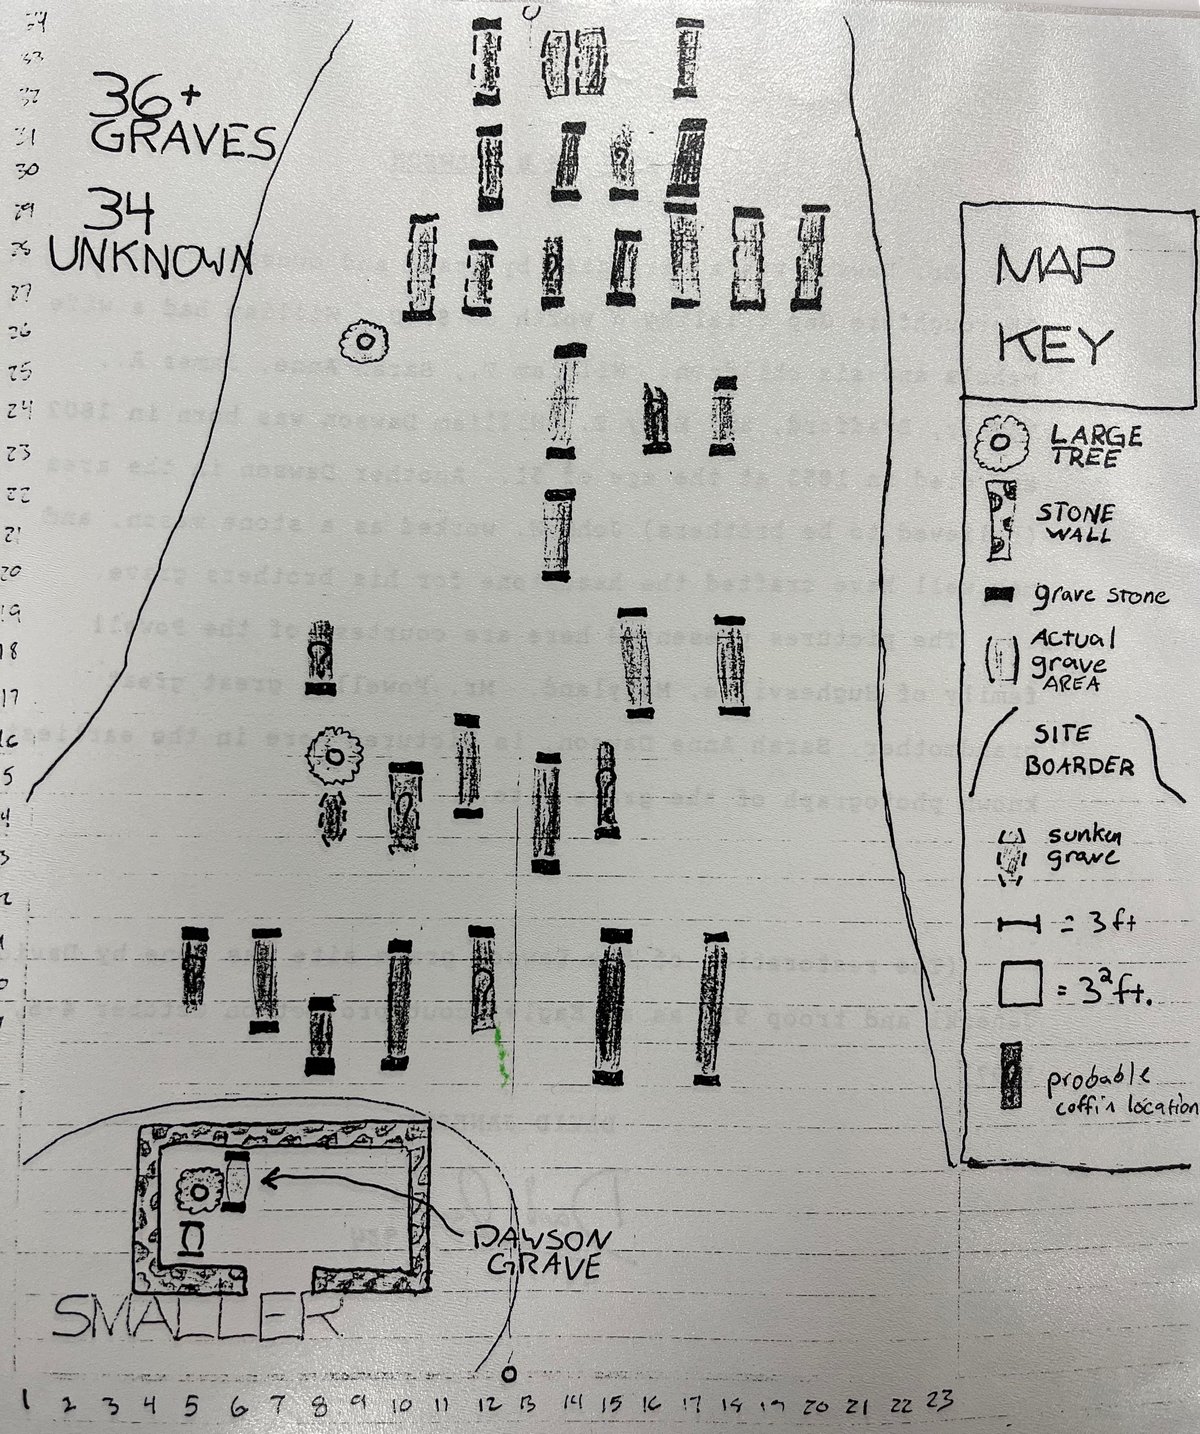 36+
GRAVES
34
UNKNOWN
34
33
32
31
30
29
28
27
26
25
24
23
22
21
20
19
18
17
16
5
4
3
2
MAP
KEY
LARGE
TREE
STONE
WALL
grave stone
Actual
grave
AREA
SITE
BOARDER
sunken
grave
= 3 ft
= 3² ft.
probable
coffin location
DAWSON
GRAVE
SMALLER
1 2 3 4 5 6 7 8 9 10 11 12 13 14 15 16 17 18 19 20 21 22 23